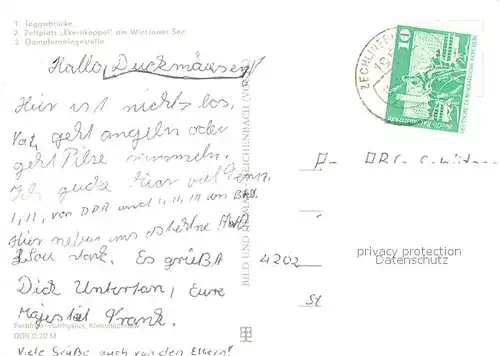 1 Tagowbrücke
2. Zeltplatz „Ekernkoppel" am Wietzower See
3 Dampferanlegestelle
Hallo, Duckmäuser!
Hier ist nichts los,
Vati geht angeln oder
geht Pilze sammeln.
Ich gucke hier viel Fern.
I, II, von DDR und I, II, III von BRD.
Hier neben uns
stark. Es grüßt
Dich Untertan, Eure
Majestät Frank.
Farbfoto: Parthysius, Kleinmachnow
DDR 0,20 M
Viele Grüße auch von den Eltern!
BILD UND HEIMAT REICHENBACH (VOGTL)
ZECHLINERH
10
DEUTSCHE DEMOKRATISCHE REPUBLIK
4202
St
privacy protection
Datenschutz